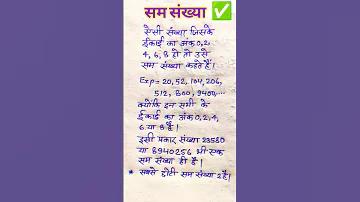 सम संख्या ✅
ऐसी संख्या जिसके
ईकाई का अंक 0, 2
4, 6, 8 हो तो उसे
सम संख्या कहते हैं।
Exp = 20, 52, 104, 206,
512, 800, 9400,...
क्योंकि इन सभी के
ईकाई का अंक 0, 2, 4,
6 या 8 है।
इसी प्रकार संख्या 23580
या 8940256 भी एक
सम संख्या ही है।
* सबसे छोटी सम संख्या 2 है।